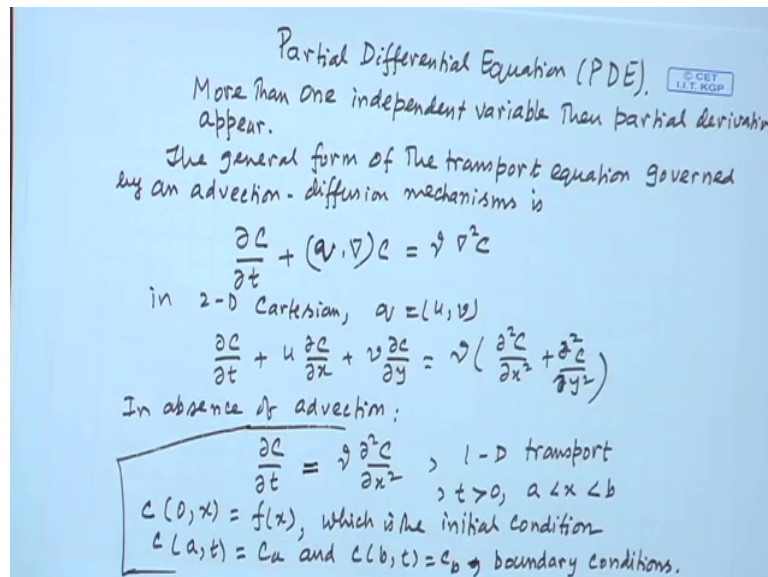 Partial Differential Equation (PDE).
© CET
I.I.T. KGP
More than one independent variable then partial derivativ
appear.
The general form of the transport equation governed
by an advection-diffusion mechanisms is
∂C/∂t + (q.∇)C = ϑ ∇²C
in 2-D Cartesian, q = (u, v)
∂C/∂t + u ∂C/∂x + v ∂C/∂y = ϑ(∂²C/∂x² + ∂²C/∂y²)
In absence of advection:
∂C/∂t = ϑ ∂²C/∂x² , 1-D transport
, t>0, a<x<b
C(0,x) = f(x), which is the initial condition
C(a,t) = Ca and C(b,t) = Cb, boundary conditions.